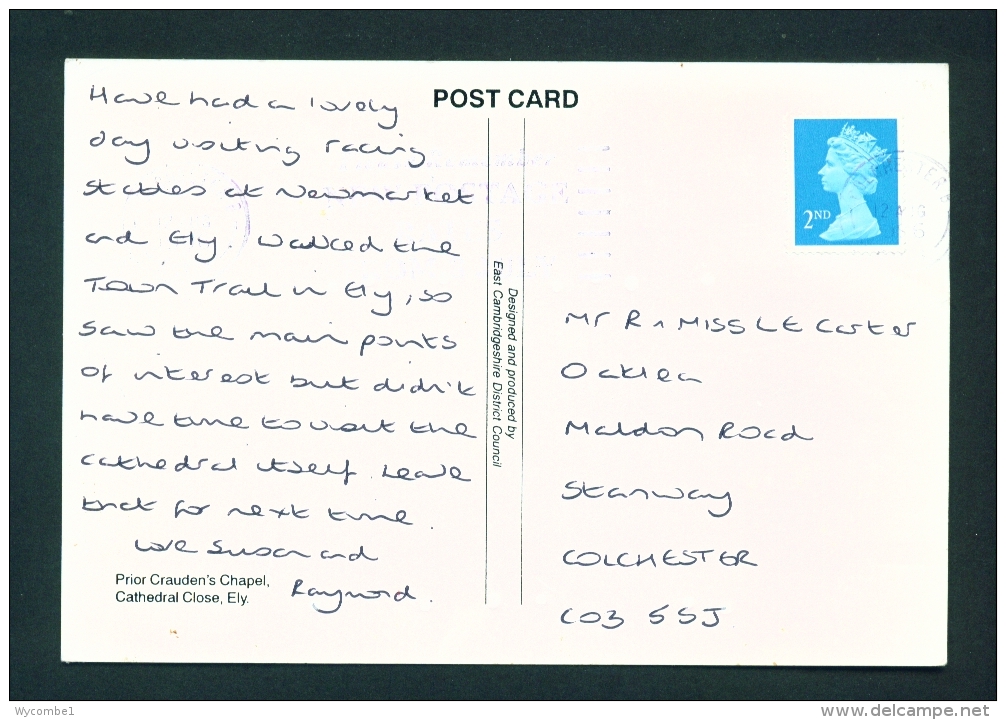 POST CARD
Have had a lovely
day visiting racing
stables at Newmarket
and Ely. Walked the
Town Trail in Ely, so
saw the main points
of interest but didn't
have time to visit the
cathedral itself. Leave
that for next time.
Love Susan and
Raymond.
Prior Crauden's Chapel,
Cathedral Close, Ely.
Designed and produced by
East Cambridgeshire District Council
2ND
Mr R & MISS L E Carter
Oaklea
Maldon Road
Stanway
COLCHESTER
CO3 5SJ
Wycombe1
www.delcampe.net